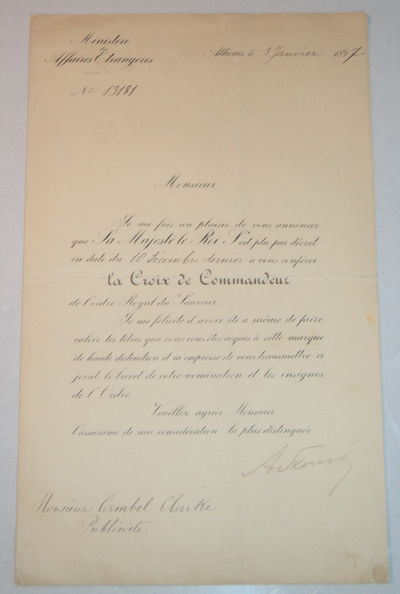 Ministère
des
Affaires Etrangères
Athènes le 3 Janvier 1897
No 13181
Monsieur
Je me fais un plaisir de vous annoncer
que Sa Majesté le Roi S'est plu par décret
en date du 10 Décembre dernier à vous conférer
la Croix de Commandeur
de l'ordre Royal du Sauveur.
Je me félicite d'avoir été à même de faire
valoir les titres que vous vous êtes acquis à cette marque
de haute distinction et m'empresse de vous transmettre ci
joint le brevet de votre nomination et les insignes
de l'Ordre
Veuillez agréer Monsieur
l'assurance de ma considération la plus distinguée
Monsieur Cambel Clarke
Publiciste